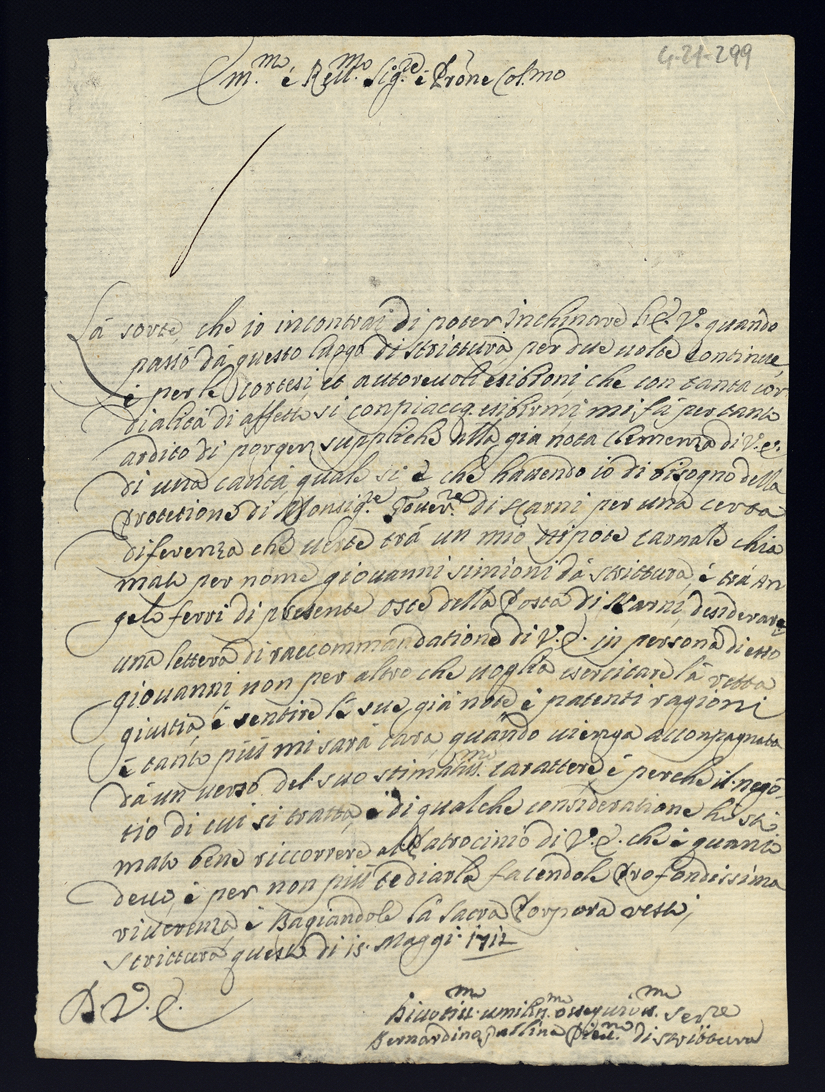 4-21-299
Em.mo e Rev.mo Sig.re e Prone Col.mo
La sorte, che io incontrai di poter inchinare L'E. V. quando
passò da questo luogo di Strittura, per due volte continue
è per le cortesi et autorevoli esibioni che con tanta cor
dialità di affetto si conpiacq. esibirmi mi fà per tanto
ardito di porger suppliche alla già nota clemenza di V. E.
di una carità quale si è che havendo io di bisogno della
Protetione di Monsig.re Gover.re di Narni per una certa
diferenza che verte trà un mio Nipote carnale chia
mato per nome giovanni simioni da strittura, è trà An
gelo ferri di presente oste della Posta di Narni, desiderarei
una lettera di raccommandatione di V. E. in persona di esso
giovanni non per altro che voglia esercitare la retta
giustia, è sentire le sue già note è patenti ragioni
è tanto più mi sarà cara quando venga acconpagnata
dà un verso del suo stimatis.mo carattere è perche il nego
tio di cui si tratta, è di qualche consideratione hò sti
mato bene riccorrere al Patrocinio di V. E. che è quanto
devo è per non più tediarla facendole Profondissima
riverenza, è Bagiandole la Sacra Porpora resto,
Strittura questo di 15. Maggi. 1712
D. V. E.
Divotis.mo umilis.mo ossequios.mo ser.re
Bernardino Pastina Piev.no di Strittura